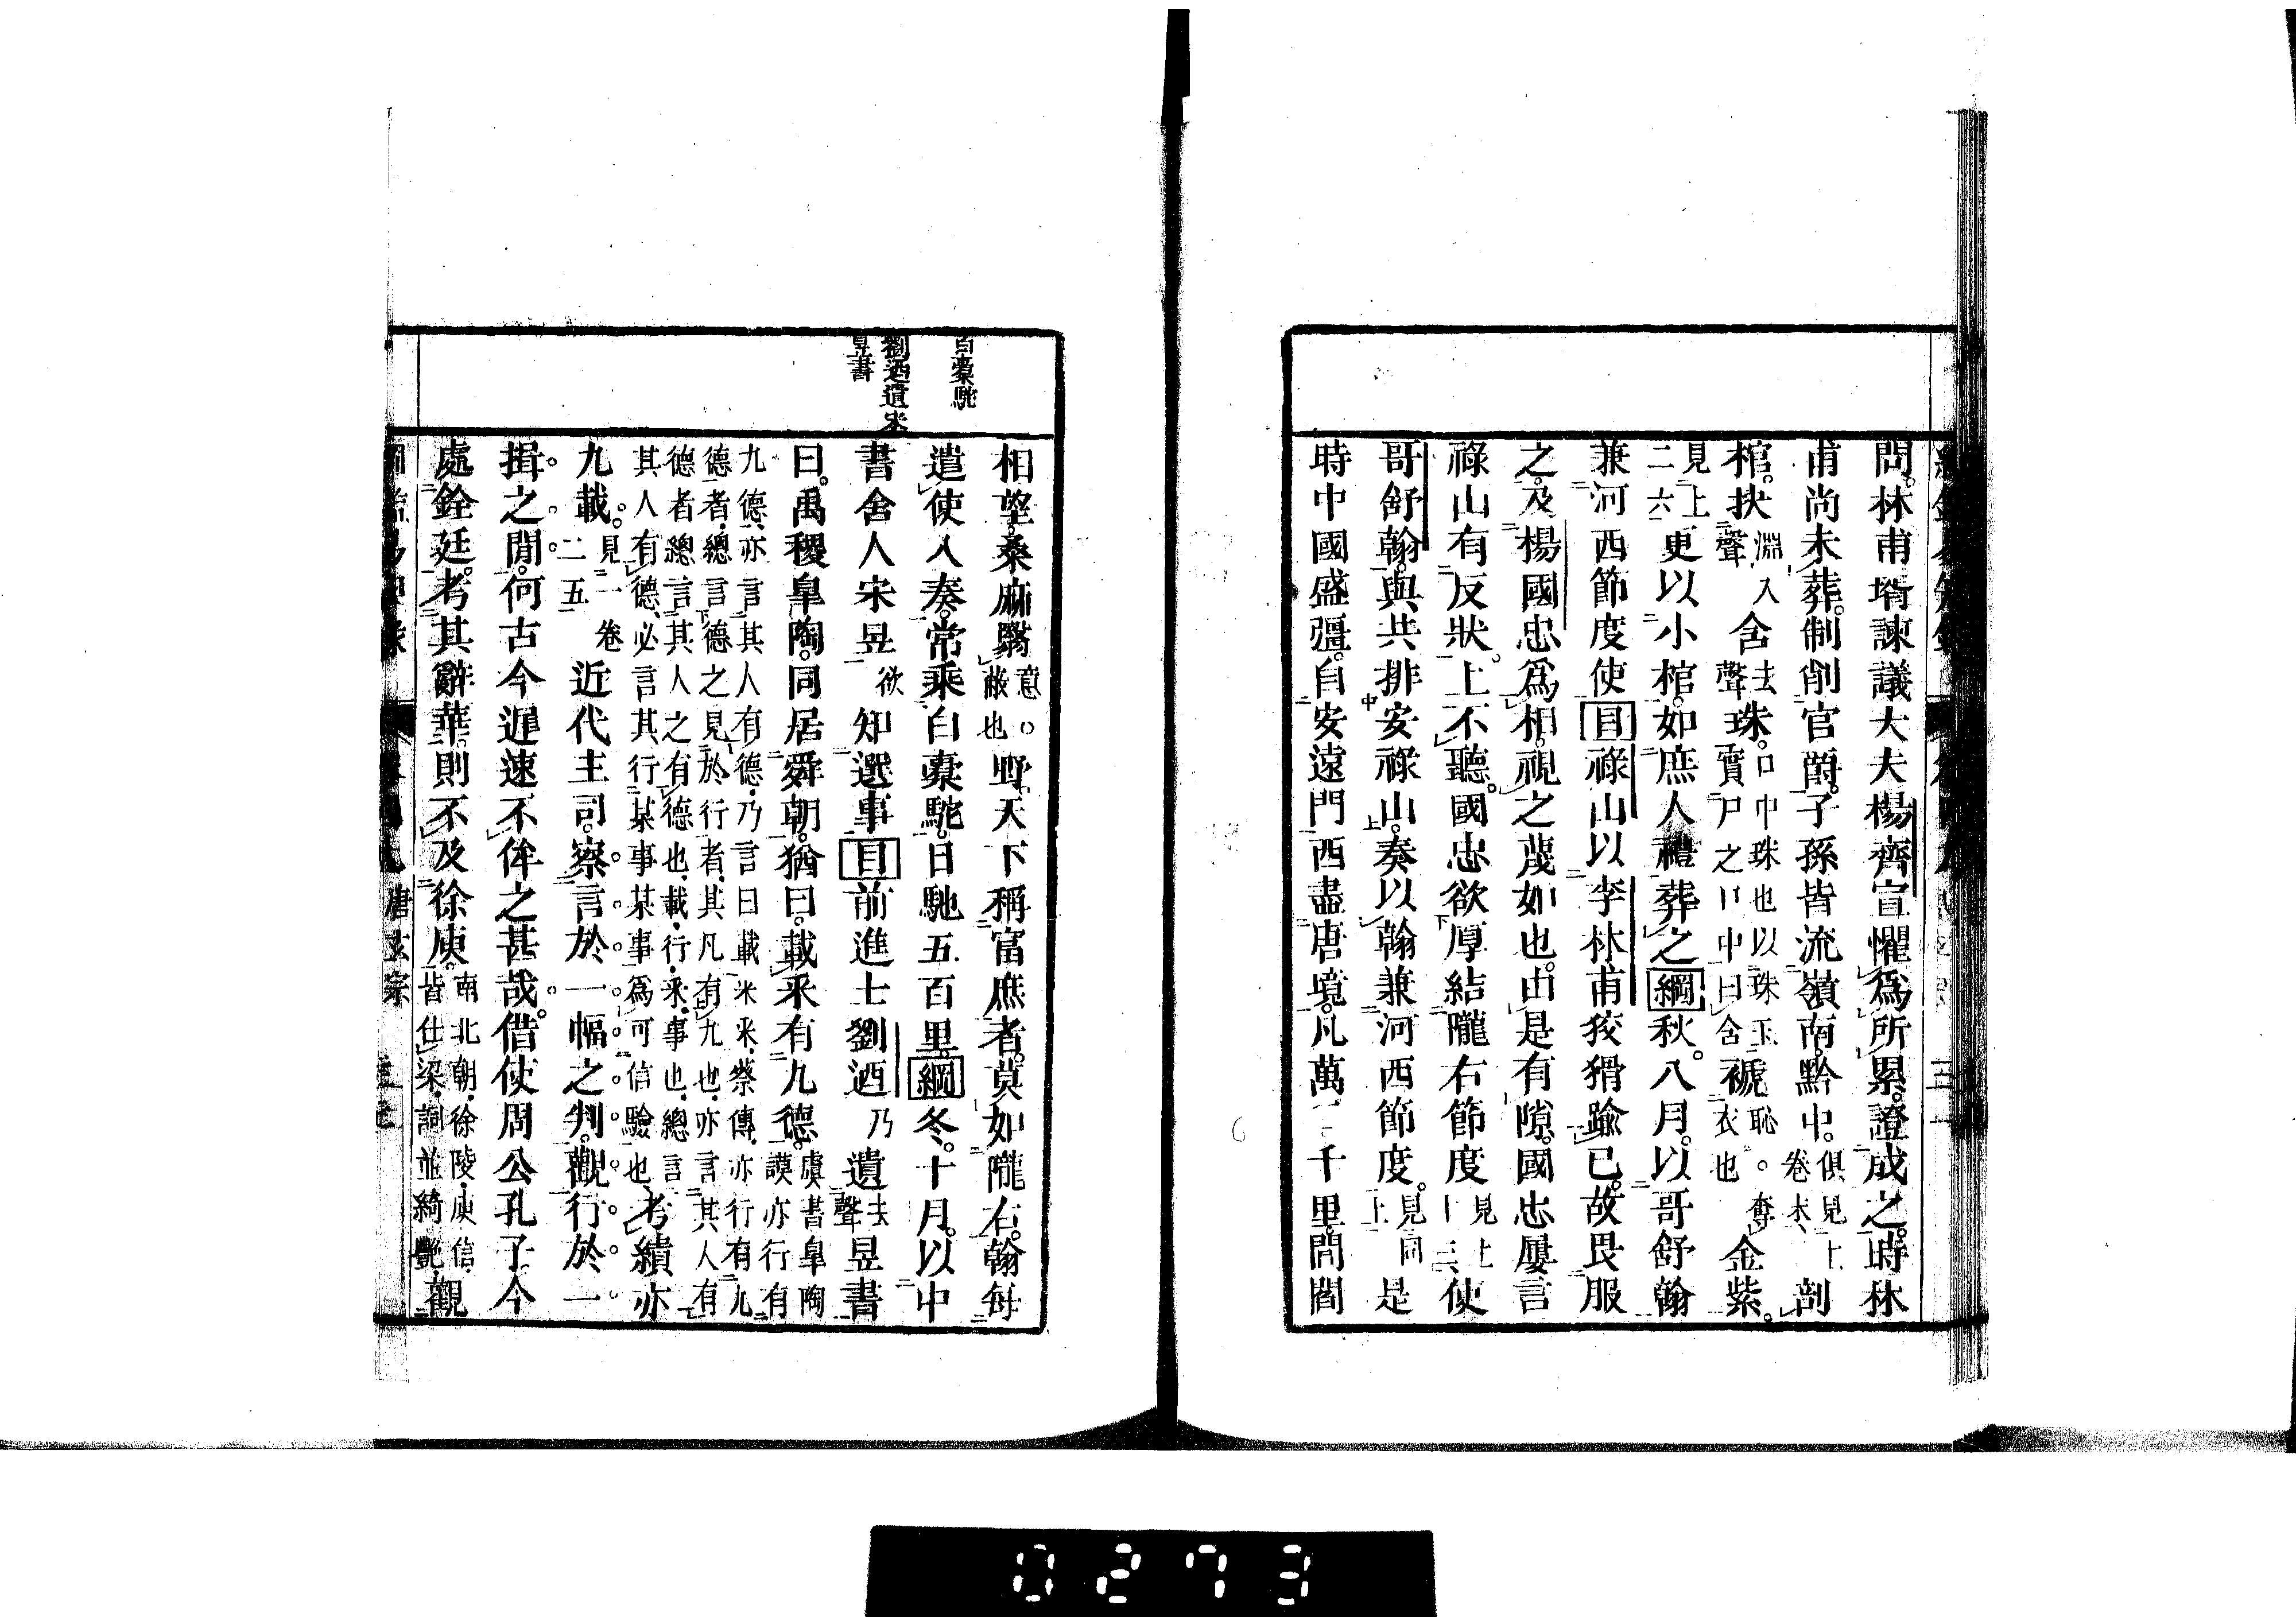 問。林甫壻諫議大夫楊齊宣懼爲所累。證成之。時林
甫尚未葬。制削官爵。子孫皆流嶺南。黔中。俱見上卷末、剖
棺。抉淵入聲。含去聲珠。口中珠也以珠玉實尸之口中曰含褫恥。奪衣也金紫。
見上二六更以小棺。如庶人禮葬之綱秋。八月。以哥舒翰
兼河西節度使目祿山以李林甫狡猾踰已。故畏服
之。及楊國忠爲相。視之蔑如也。由是有隙。國忠屢言
祿山有反狀。上不聽。國忠欲厚結隴右節度見上十三、使
哥舒翰。與共排安祿山。奏以翰兼河西節度。見同上是
時中國盛彊。自安遠門西盡唐境。凡萬二千里。閭閻
白橐駝
劉迺遺宋
昱書
相望。桑麻翳意。蔽也。野。天下稱富庶者。莫如隴右。翰每
遣使入奏。常乘白橐駝。日馳五百里綱冬。十月。以中
書舍人宋昱欲知選事目前進士劉迺乃遺去聲昱書
曰。禹稷皐陶。同居舜朝。猶曰。載采有九德。虞書皐陶謨亦行有
九德、亦言其人有德、乃言曰載采采、蔡傳、亦行有九
德者、總言德之見於行者、其凡有九也、亦言其人有
德者總言其人之有德也、載、行、采、事也、總言
其人有德、必言其行某事某事爲可信驗也、考績亦
九載。見一卷二五近代主司。察言於一幅之判。觀行於一
揖之閒。何古今遲速不侔之甚哉。借使周公孔子。今
處銓廷。考其辭華。則不及徐庾。南北朝、徐陵、庾信、皆仕梁、詞並綺艷、觀
唐玄宗